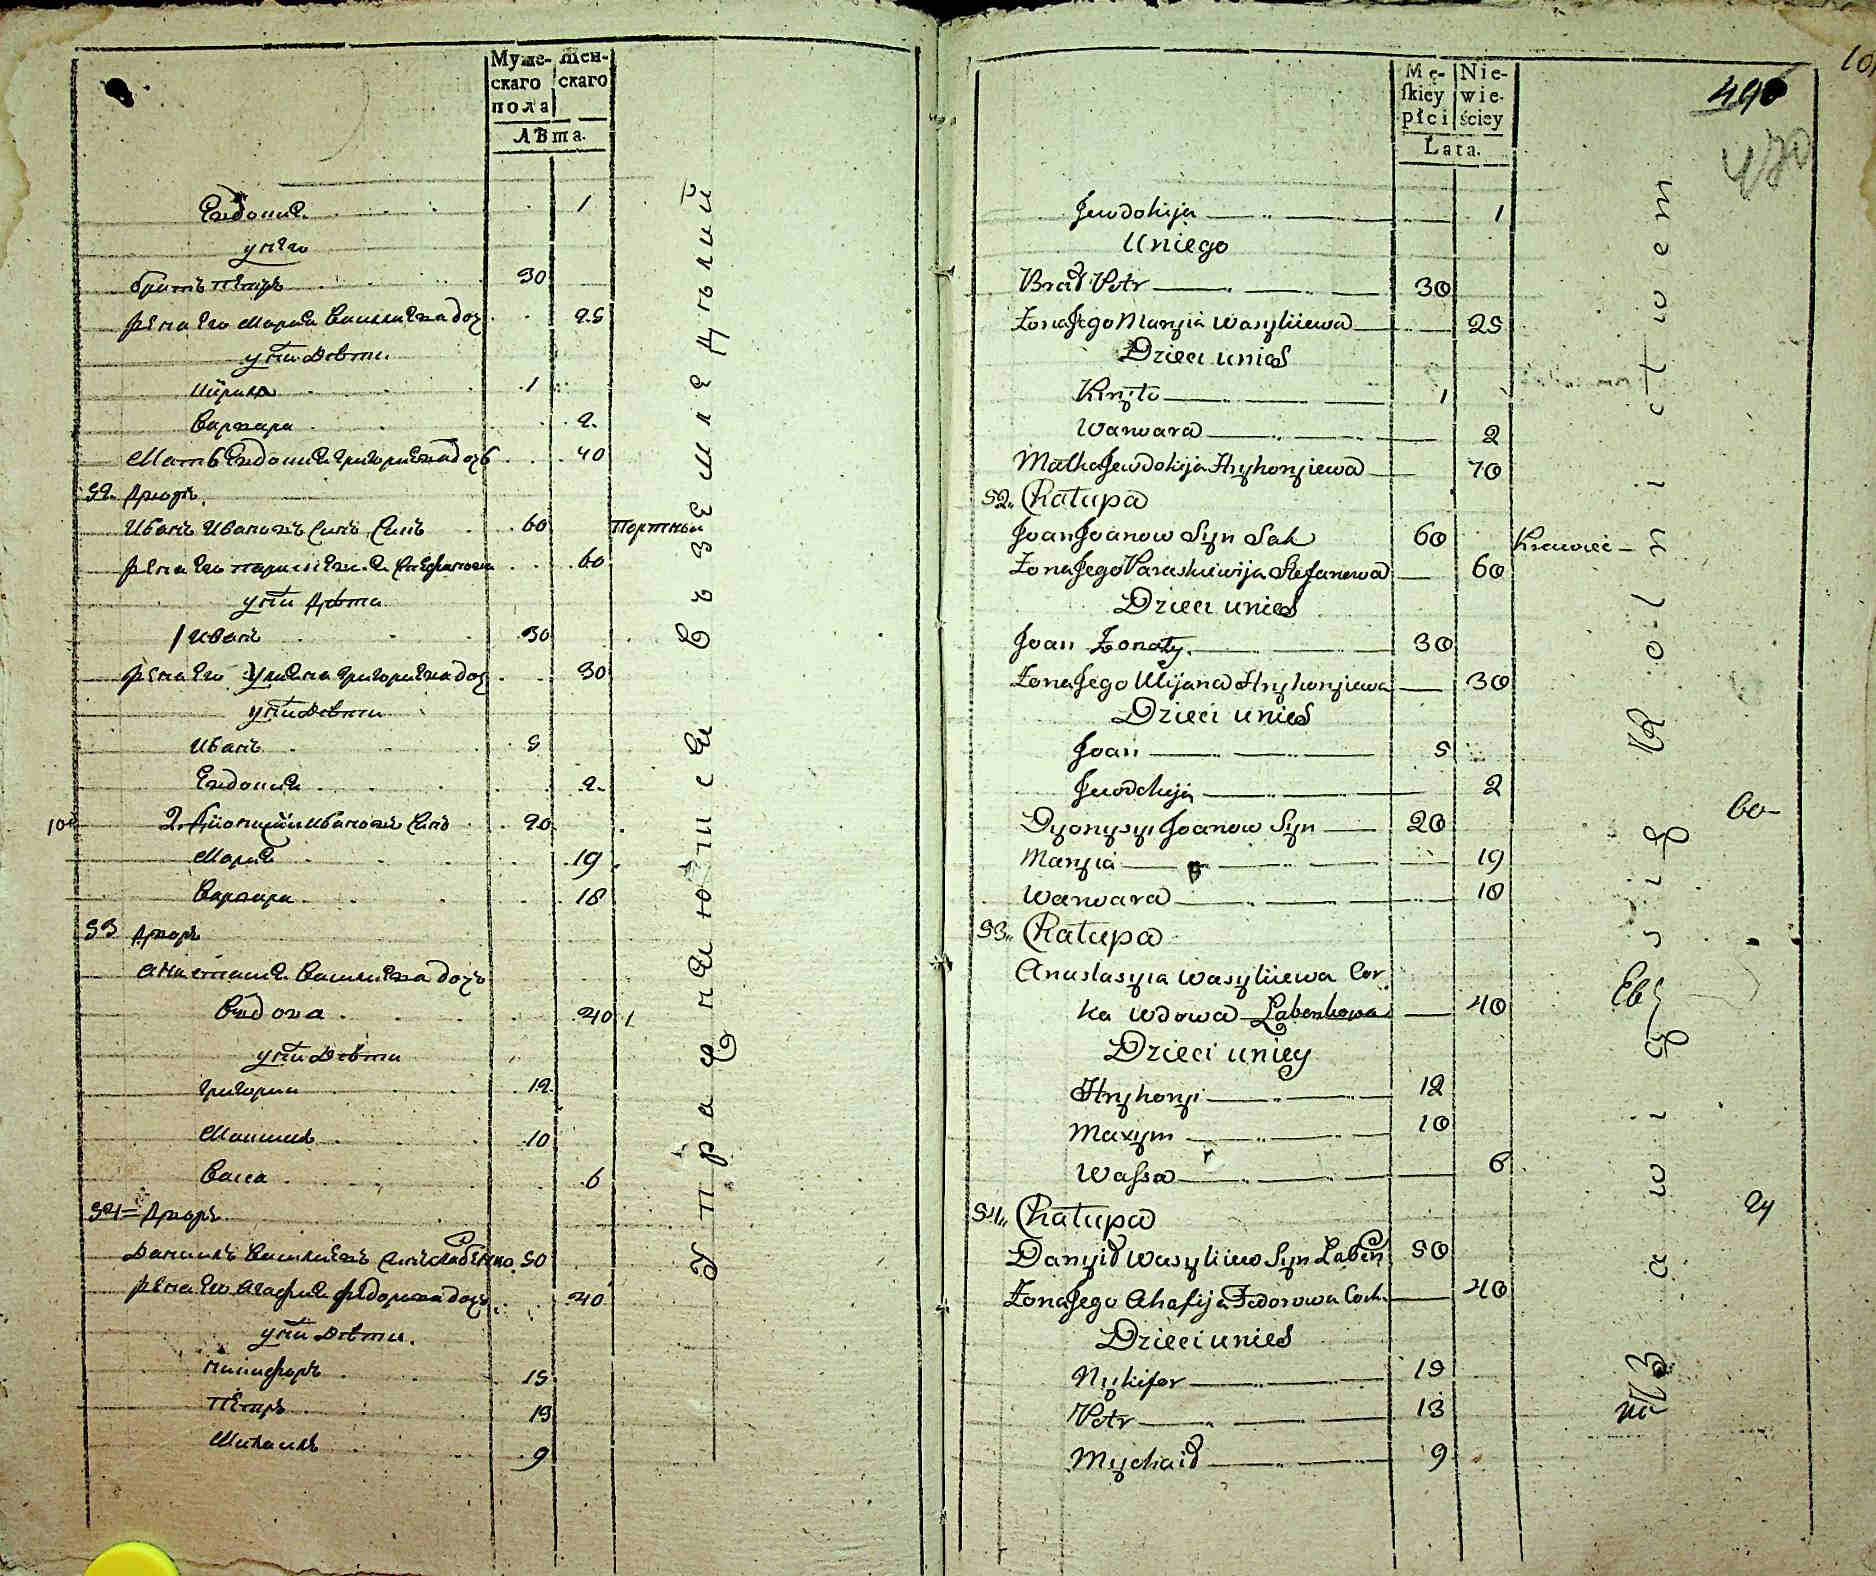 Муже-
скаго
пола
Жен-
скаго
Лѣта.
Евдокия 1
у него
братъ Петръ 30
жена его Мария Василиева доч 25
у ни дѣти
Кирила 1
Варвара 2
Мать Евдокия Григориева дочь 40
52 Дворъ
Иванъ Ивановъ синъ 60 Портный
жена его Параскевия Стефанова 60
у ни дѣти
1 Иванъ 30
жена его Улиана Григориева доч 30
у ни дѣти
Иванъ 5
Евдокия 2
2. Дионисий Ивановъ синъ 20
Мария 19
Варвара 18
53 Дворъ
Анастасия Василиева дочь
Вдова 40
у ни дѣти
Григорий 12
Максимъ 10
Васса 6
54 Дворъ
Даниилъ Василиевъ синъ Лабенко 50
жена его Агафия Федорова дочь 40
у ни дѣти
Никифоръ 15
Петръ 13
Михаилъ 9
Упражняютися въ земледѣлий
Mę-
skiey
płci
Nie-
wie-
ściey
Lata.
496
470
Jewdokija 1
Uniego
Brad Potr 30
Żona Jego Maryia Wasyliiewa 25
Dzieci unied
Kryło 1
Warwara 2
Matka Jewdokija Hryhoryiewa 70
52 Chałupa
Joan Joanow Syn Sak 60 Krawiec
Żona Jego Paraskiewija Stefanowa 60
Dzieci unied
Joan Żonaty 30
Żona Jego Ulijana Hryhoryiewa 30
Dzieci unied
Joan 5
Jewdokija 2
Dyonyzyi Joanow Syn 20 60
Maryia 19
Warwara 18
53 Chałupa
Anastasyia Wasyliiewa Cor
ka Wdowa Łabenkowa 40
Dzieci uniey
Hryhoryi 12
Maxym 10
Wassa 6
54 Chałupa 24
Danyił Wasyliiew Syn Łaben 50
Żona Jego Ahafija Fedorowa Cork 40
Dzieci unied
Nykifor 15
Potr 13
Mychaił 9
Bawią się Rolnictwem